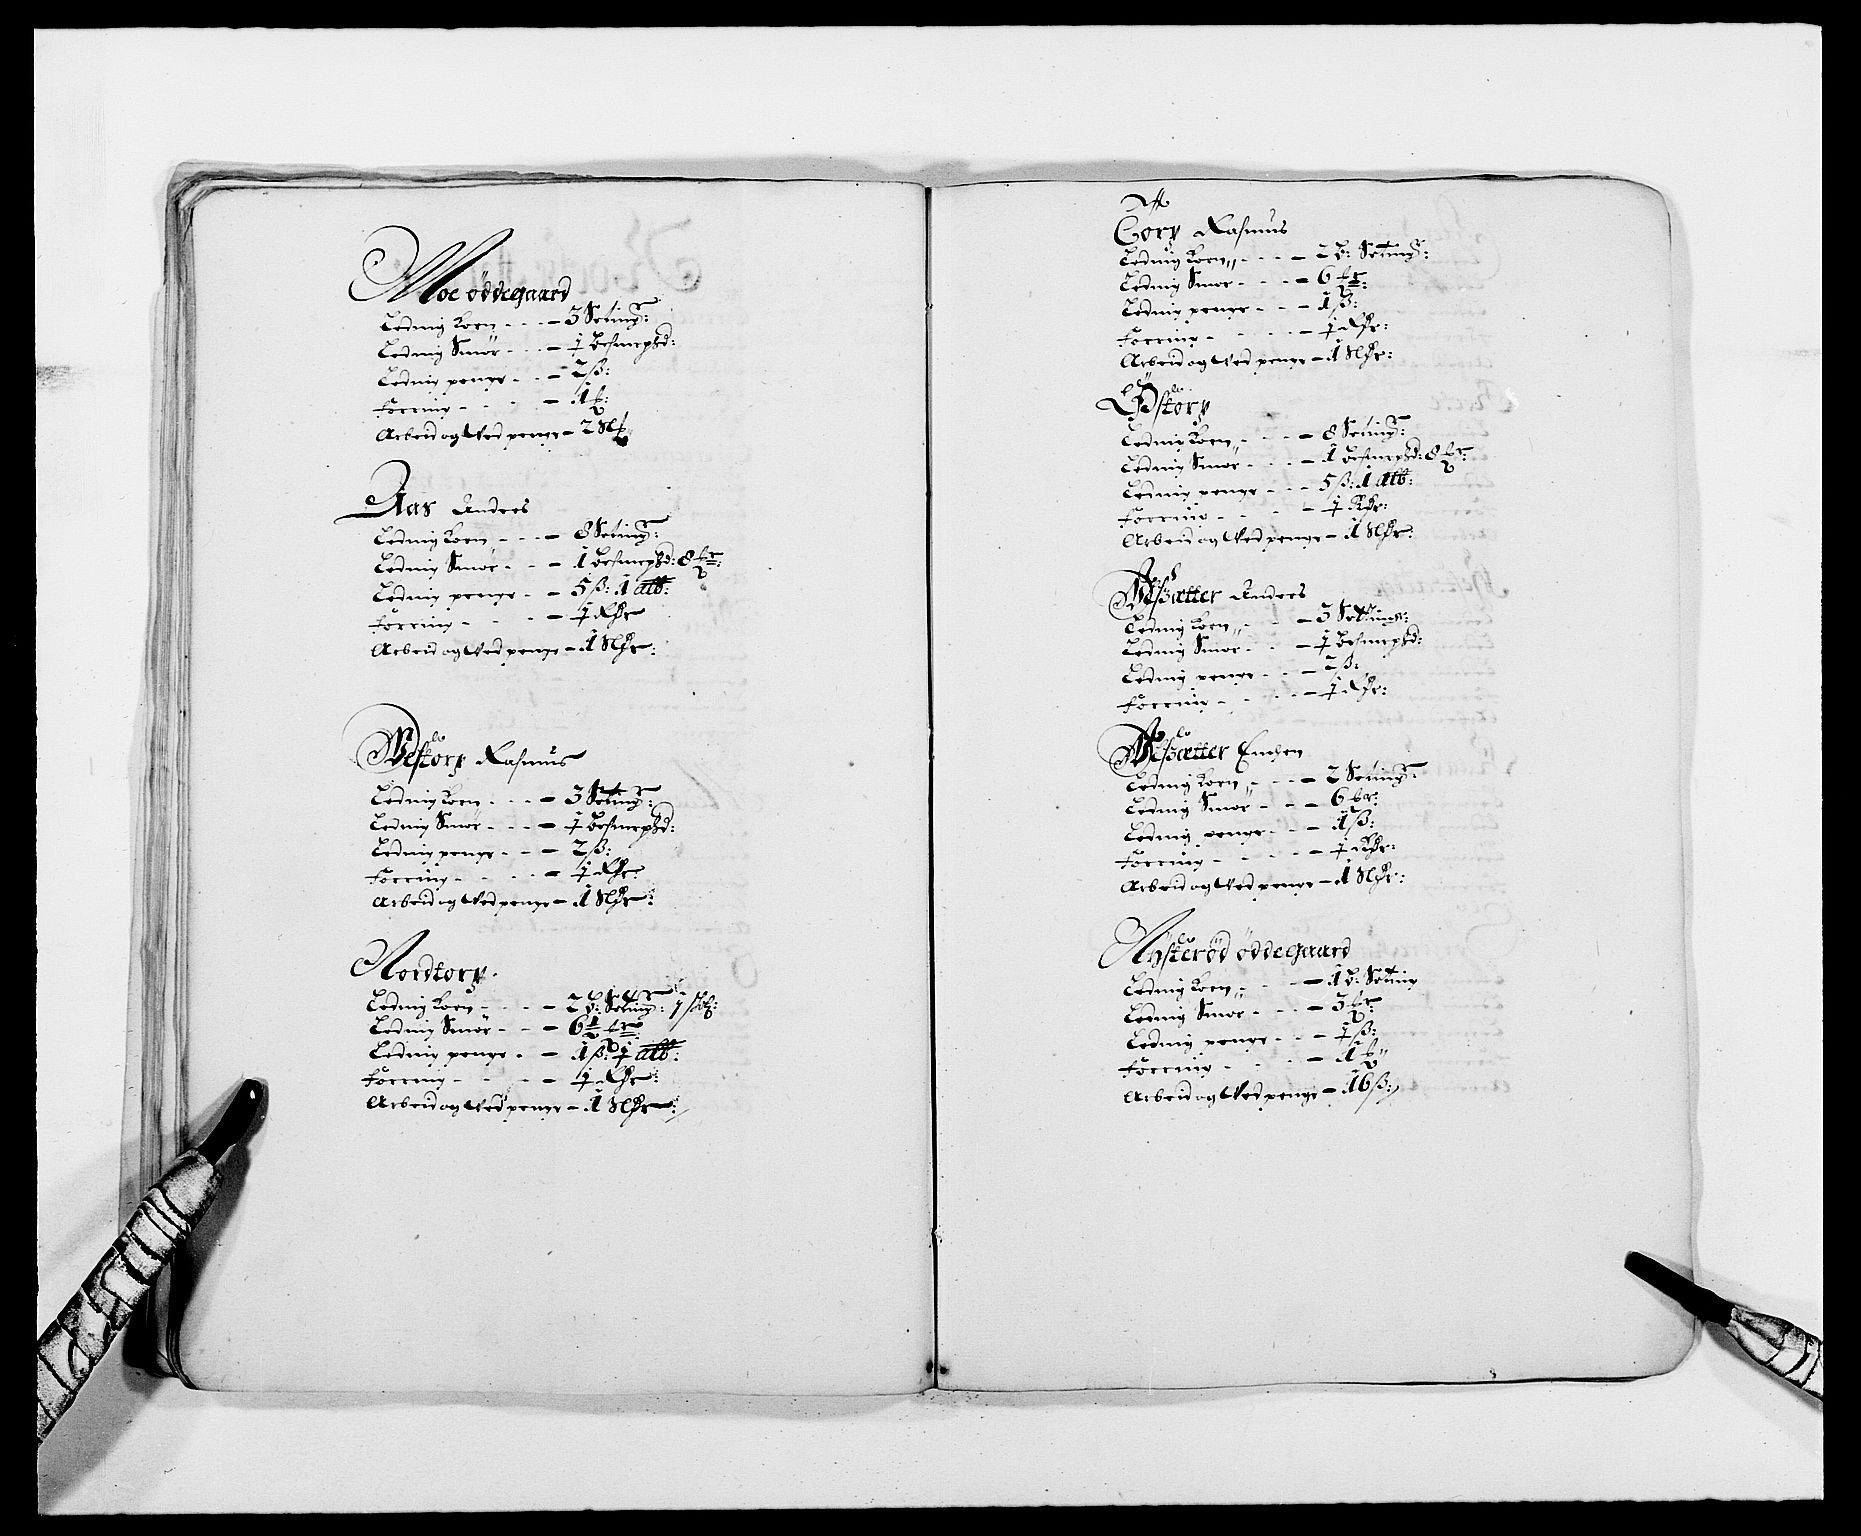 Moe öddegaard
Leding Korn - - - - 3 Seting:
Leding Smör - - - - ½ Besmerpd:
Leding penge - - - 2 ß:
Foering - - - - 1 ℔:
Arbeid og Ved penge - 2 Mk

Aas Anders
Leding Korn - - - - 8 Setingr:
Leding Smör - - - 1 Besmerpd: 8 mkr:
Leding penge - - - 5 ß: 1 alb:
Foering - - - - ½ Rdr
Arbeid og Ved penge - 1 Sldr:

Westorp Rasmus
Leding Korn - - - - 3 Setingr:
Leding Smör - - - - ½ Besmerpd:
Leding penge - - - 2 ß:
Foering - - - - ½ Rdr
Arbeid og Ved penge - 1 Sldr:

Nordtorp.
Leding Korn - - - - 2 b: Setingr:
Leding Smör - - - 6½ mkr
Leding penge - - 1 ß: ½ alb:
Foering - - - - ½ Rdr:
Arbeid og Ved penge - 1 Sldr:

Torp Rasmus
Leding Korn - - - - 2 b: Setingr:
Leding Smör - - - - 6 mkr:
Leding penge - - - 1 ß:
Foering - - - - ½ Rdr:
Arbeid og Ved penge - 1 Sldr:

Östorp
Leding Korn - - - - 8 Setingr:
Leding Smör - - - - 1 Besmerpd: 8 mkr:
Leding penge - - - 5 ß: 1 alb:
Foering - - - - ½ Rdr:
Arbeid og Ved penge - 1 Sldr:

Wesszætter Anders
Leding Korn - - - - 3 Setinger:
Leding Smör - - - ½ Besmerpd:
Leding penge - - - 2 ß:
Foering - - - - ½ Rdr:

Wesszætter Engen
Leding Korn - - - - 2 Setingr:
Leding Smör - - - 6 mkr:
Leding penge - - - 1 ß:
Foering - - - - ½ Rdr:
Arbeid og Ved penge - 1 Sldr:

Nysteröd öddegaard
Leding Korn - - - - 1 b: Seting
Leding Smör - - - - 3 mkr
Leding penge - - - ½ ß:
Foering - - - - 1
Arbeid og Ved penge - 16 ß: